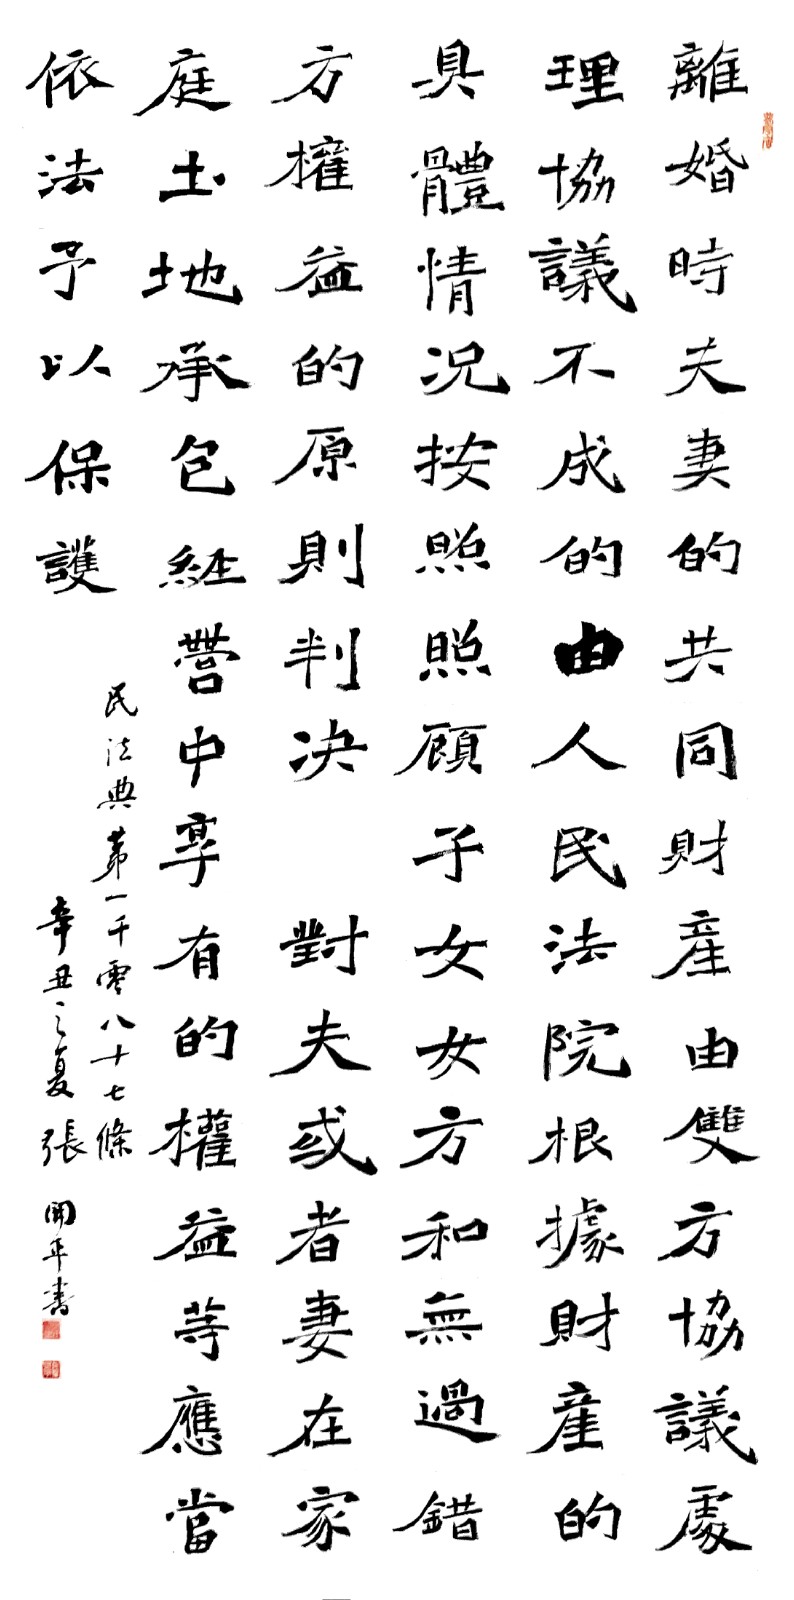 離婚時夫妻的共同財産由雙方協議處
理協議不成的由人民法院根據財産的
具體情况按照照顧子女女方和無過錯
方權益的原則判决 對夫或者妻在家
庭土地承包經營中享有的權益等應當
依法予以保護
民法典第一千零八十七條
辛丑之夏張開平書